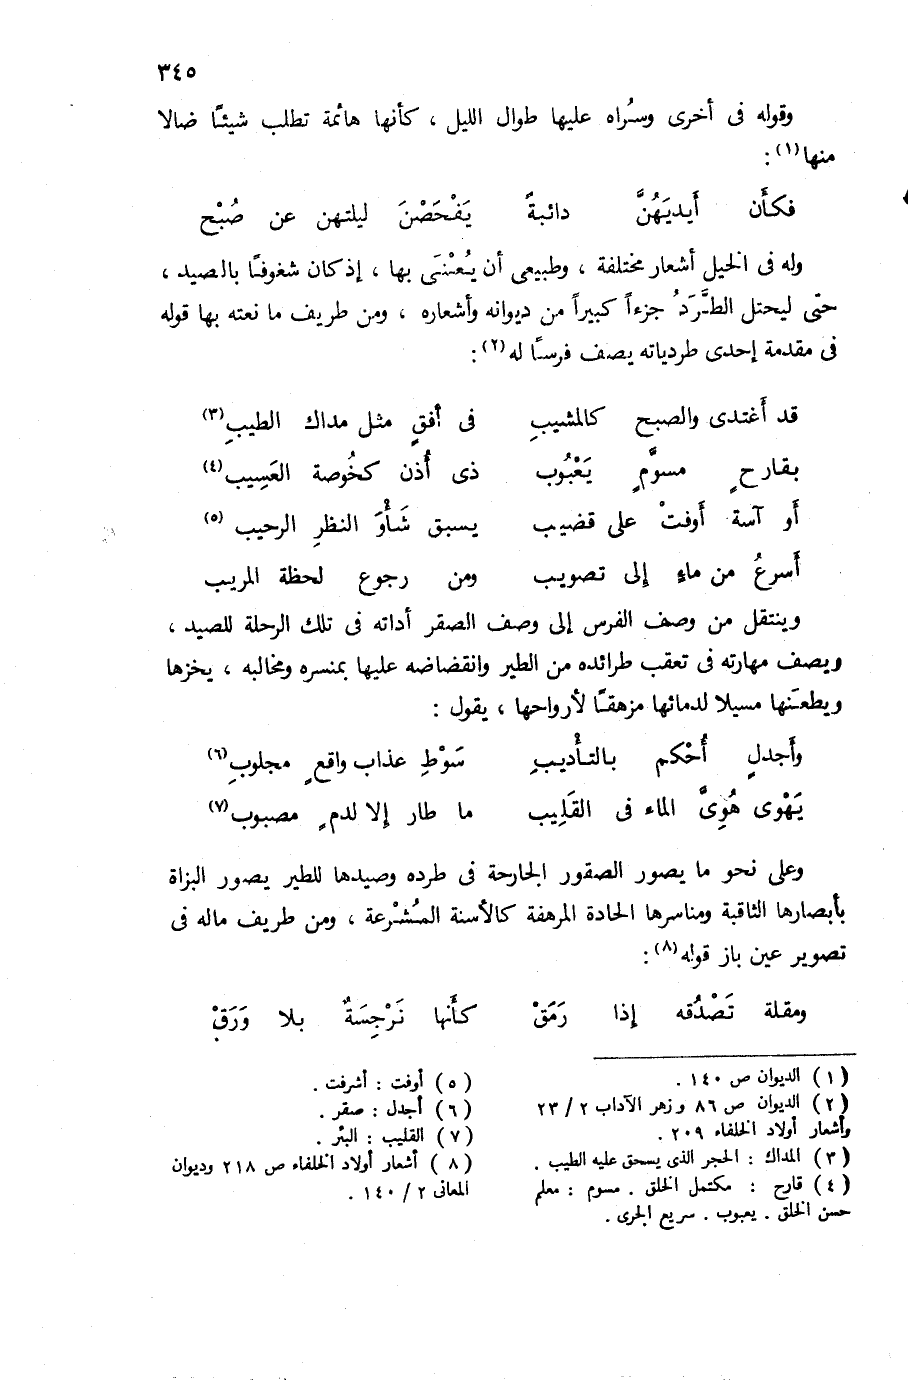 ٣٤٥
وقوله فى أخرى وسُراه عليها طوال الليل ، كأنها هائمة تطلب شيئًا ضالا
منها(١) :
فكأن أَيديَهُنَّ دائبةً يَفْحَصْنَ ليلتهن عن صُبْح
وله فى الخيل أشعار مختلفة ، وطبيعى أن يُعْنَى بها ، إذ كان شغوفًا بالصيد ،
حتّى ليحتل الطَّرَدُ جزءاً كبيراً من ديوانه وأشعاره ، ومن طريف ما نعته بها قوله
فى مقدمة إحدى طردياته يصف فرسًا له(٢) :
قد أَغتدى والصبح كالمشيبِ فى أُفقٍ مثل مداك الطيبِ(٣)
بقارحٍ مسوَّمٍ يَعْبُوب ذى أُذن كخُوصة العَسِيب(٤)
أَو آسة أَوفتْ على قضيب يسبق شَأْوَ النظرِ الرحيب(٥)
أَسرعُ من ماءٍ إلى تصويب ومن رجوع لحظة المريب
وينتقل من وصف الفرس إلى وصف الصقر أداته فى تلك الرحلة للصيد ،
ويصف مهارته فى تعقب طرائده من الطير وانقضاضه عليها بمنسره ومخالبه ، يخزها
ويطعنها مسيلا لدمائها مزهقًا لأرواحها ، يقول :
وأَجدلٍ أُحْكم بالتأْديبِ سَوْطِ عذاب واقعٍ مجلوبِ(٦)
يَهْوى هُوِىَّ الماء فى القَلِيب ما طار إلا لدمٍ مصبوب(٧)
وعلى نحو ما يصور الصقور الجارحة فى طرده وصيدها للطير يصور البزاة
بأبصارها الثاقبة ومناسرها الحادة المرهفة كالأسنة المُشْرعة ، ومن طريف ماله فى
تصوير عين باز قوله(٨) :
ومقلة تَصْدُقه إذا رَمَقْ كأَنها نَرْجِسَةٌ بلا وَرَقْ
(١) الديوان ص ١٤٠ .
(٢) الديوان ص ٨٦ وزهر الآداب ٢ / ٢٣
وأشعار أولاد الخلفاء ٢٠٩ .
(٣) المداك : الحجر الذى يسحق عليه الطيب .
(٤) قارح : مكتمل الخلق . مسوم : معلم
حسن الخلق . يعبوب . سريع الجرى .
(٥) أوفت : أشرفت .
(٦) أجدل : صقر .
(٧) القليب : البئر .
(٨) أشعار أولاد الخلفاء ص ٢١٨ وديوان
المعانى ٢ / ١٤٠ .